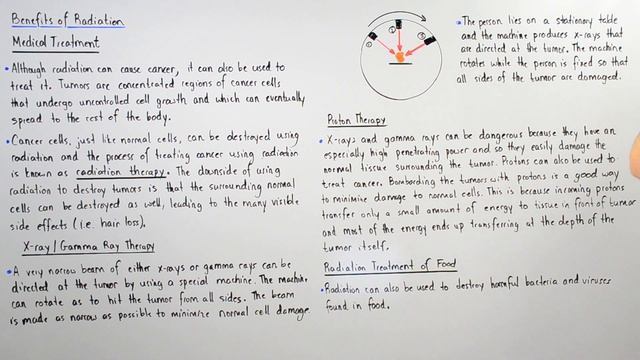 Benefits of Radiation
Medical Treatment
• Although radiation can cause cancer, it can also be used to
treat it. Tumors are concentrated regions of cancer cells
that undergo uncontrolled cell growth and which can eventually
spread to the rest of the body.
• Cancer cells, just like normal cells, can be destroyed using
radiation and the process of treating cancer using radiation
is known as radiation therapy. The downside of using
radiation to destroy tumors is that the surrounding normal
cells can be destroyed as well, leading to the many visible
side effects (i.e. hair loss).
X-ray/Gamma Ray Therapy
• A very narrow beam of either x-rays or gamma rays can be
directed at the tumor by using a special machine. The machine
can rotate as to hit the tumor from all sides. The beam
is made as narrow as possible to minimize normal cell damage.
• The person lies on a stationary table
and the machine produces x-rays that
are directed at the tumor. The machine
rotates while the person is fixed so that
all sides of the tumor are damaged.
Proton Therapy
• X-rays and gamma rays can be dangerous because they have an
especially high penetrating power and so they easily damage the
normal tissue surrounding the tumor. Protons can also be used to
treat cancer. Bombarding the tumors with protons is a good way
to minimize damage to normal cells. This is because incoming protons
transfer only a small amount of energy to tissue in front of tumor
and most of the energy ends up transferring at the depth of the
tumor itself.
Radiation Treatment of Food
• Radiation can also be used to destroy harmful bacteria and viruses
found in food.